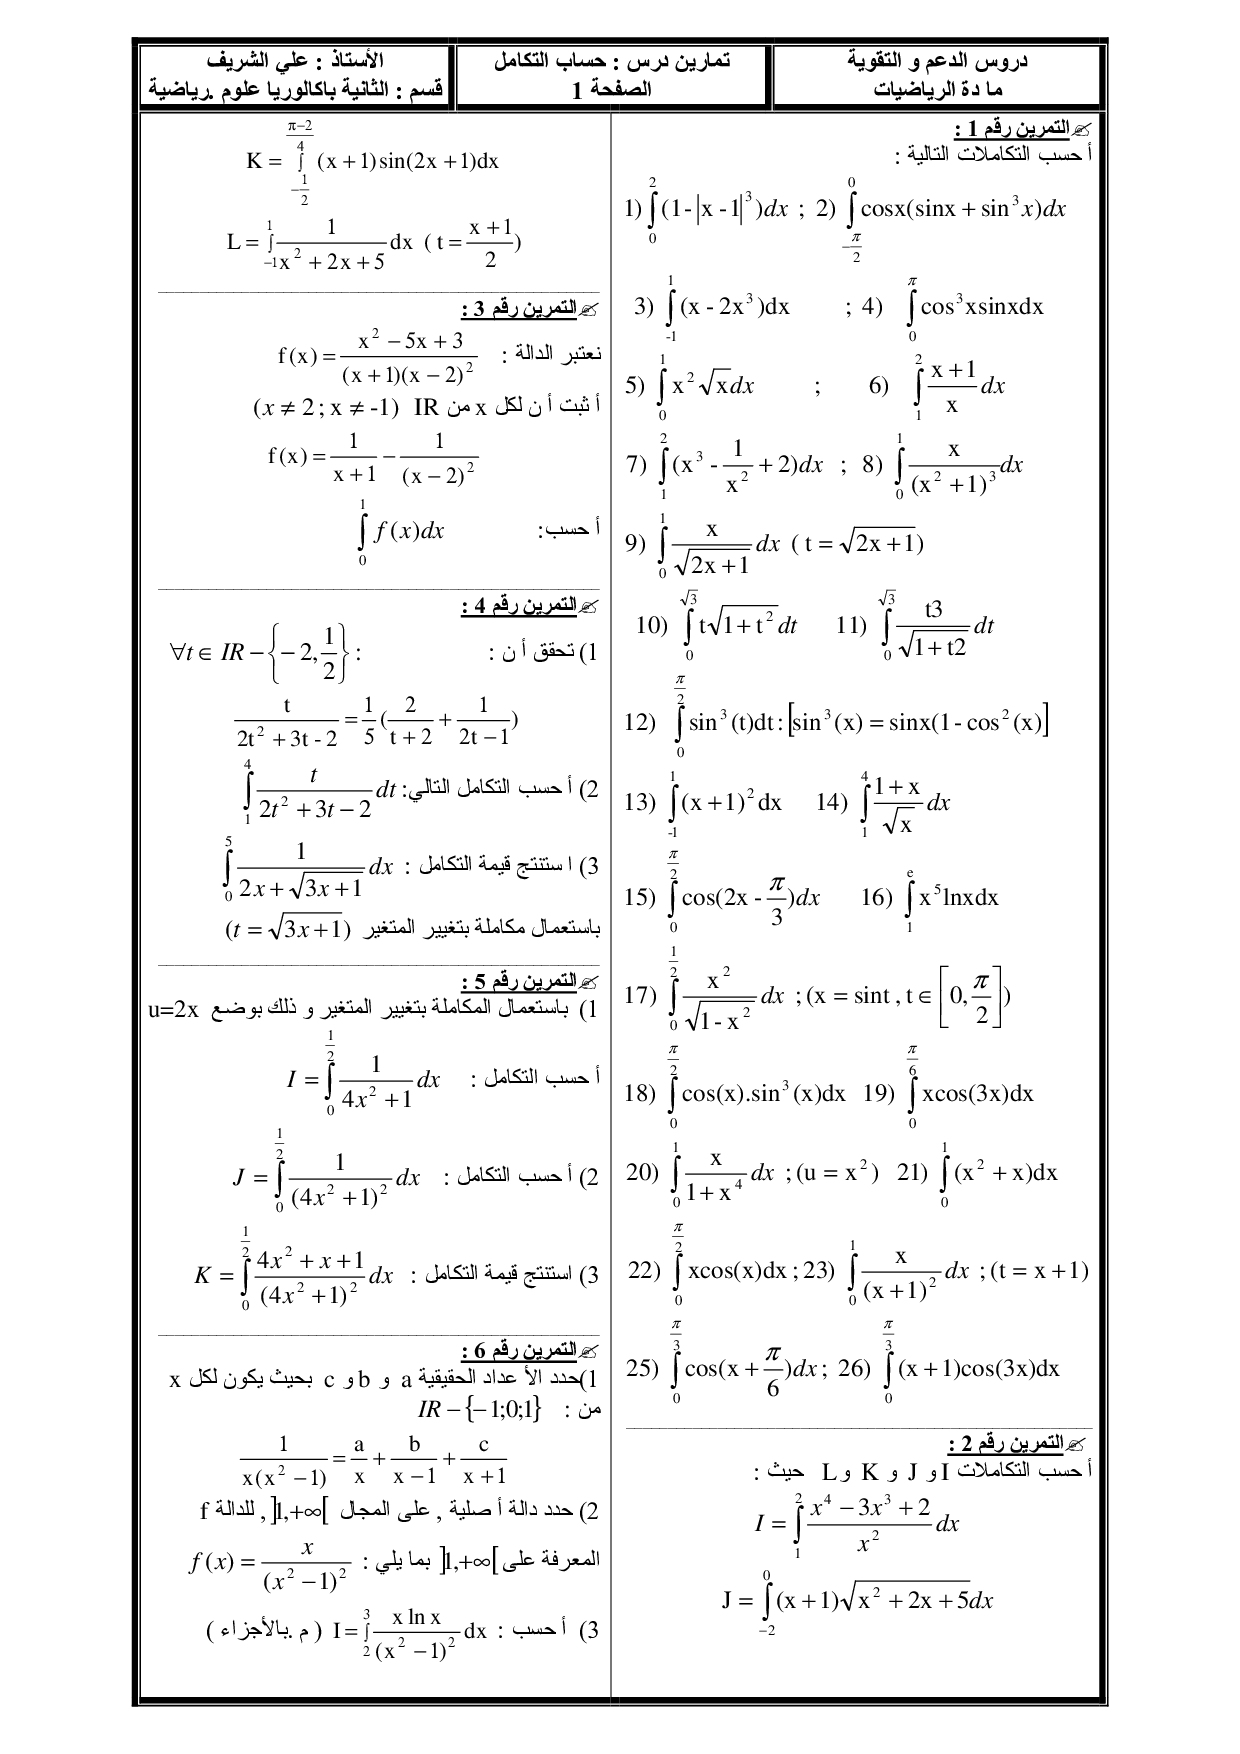 دروس الدعم و التقوية
ما دة الرياضيات
تمارين درس : حساب التكامل
الصفحة 1
الأستاذ : علي الشريف
قسم : الثانية باكالوريا علوم .رياضية
التمرين رقم 1 :
أ حسب التكاملات التالية :
1) ∫_0^2 (1 - |x - 1|^3)dx ; 2) ∫_{-π/2}^0 cosx(sinx + sin^3 x)dx
3) ∫_{-1}^1 (x - 2x^3)dx ; 4) ∫_0^π cos^3xsinxdx
5) ∫_0^1 x^2 √x dx ; 6) ∫_1^2 (x + 1)/x dx
7) ∫_1^2 (x^3 - 1/x^2 + 2)dx ; 8) ∫_0^1 x/(x^2 + 1)^3 dx
9) ∫_0^1 x/√(2x + 1) dx ( t = √(2x + 1))
10) ∫_0^√3 t√(1 + t^2) dt 11) ∫_0^√3 t3/√(1 + t2) dt
12) ∫_0^{π/2} sin^3(t)dt : [sin^3(x) = sinx(1 - cos^2(x)]
13) ∫_{-1}^1 (x + 1)^2 dx 14) ∫_1^4 (1 + x)/√x dx
15) ∫_0^{π/2} cos(2x - π/3)dx 16) ∫_1^e x^5 lnxdx
17) ∫_0^{1/2} x^2/√(1 - x^2) dx ; (x = sint , t ∈ [0, π/2])
18) ∫_0^{π/2} cos(x).sin^3(x)dx 19) ∫_0^{π/6} xcos(3x)dx
20) ∫_0^1 x/(1 + x^4) dx ; (u = x^2) 21) ∫_0^1 (x^2 + x)dx
22) ∫_0^{π/2} xcos(x)dx ; 23) ∫_0^1 x/(x + 1)^2 dx ; (t = x + 1)
25) ∫_0^{π/3} cos(x + π/6)dx ; 26) ∫_0^{π/3} (x + 1)cos(3x)dx
التمرين رقم 2 :
أ حسب التكاملات I و J و K و L حيث :
I = ∫_1^2 (x^4 - 3x^3 + 2)/x^2 dx
J = ∫_{-2}^0 (x + 1)√(x^2 + 2x + 5)dx
K = ∫_{-1/2}^{(π-2)/4} (x + 1)sin(2x + 1)dx
L = ∫_{-1}^1 1/(x^2 + 2x + 5) dx ( t = (x + 1)/2 )
التمرين رقم 3 :
نعتبر الدالة : f(x) = (x^2 - 5x + 3)/((x + 1)(x - 2)^2)
أ ثبت أ ن لكل x من IR (x ≠ 2 ; x ≠ -1)
f(x) = 1/(x + 1) - 1/(x - 2)^2
أ حسب: ∫_0^1 f(x)dx
التمرين رقم 4 :
1) تحقق أ ن : ∀t ∈ IR - {-2, 1/2} :
t/(2t^2 + 3t - 2) = 1/5 (2/(t + 2) + 1/(2t - 1))
2) أ حسب التكامل التالي: ∫_1^4 t/(2t^2 + 3t - 2) dt
3) ا ستنتج قيمة التكامل : ∫_0^5 1/(2x + √(3x + 1)) dx
باستعمال مكاملة بتغيير المتغير (t = √(3x + 1))
التمرين رقم 5 :
1) باستعمال المكاملة بتغيير المتغير و ذلك بوضع u=2x
أ حسب التكامل : I = ∫_0^{1/2} 1/(4x^2 + 1) dx
2) أ حسب التكامل : J = ∫_0^{1/2} 1/(4x^2 + 1)^2 dx
3) استنتج قيمة التكامل : K = ∫_0^{1/2} (4x^2 + x + 1)/(4x^2 + 1)^2 dx
التمرين رقم 6 :
1)حدد الأ عداد الحقيقية a و b و c بحيث يكون لكل x
من : IR - {-1;0;1}
1/(x(x^2 - 1)) = a/x + b/(x - 1) + c/(x + 1)
2) حدد دالة أ صلية , على المجال ]1,+∞[ , للدالة f
المعرفة على ]1,+∞[ بما يلي : f(x) = x/(x^2 - 1)^2
3) أ حسب : I = ∫_2^3 x ln x/(x^2 - 1)^2 dx ( م .بالأجزاء )